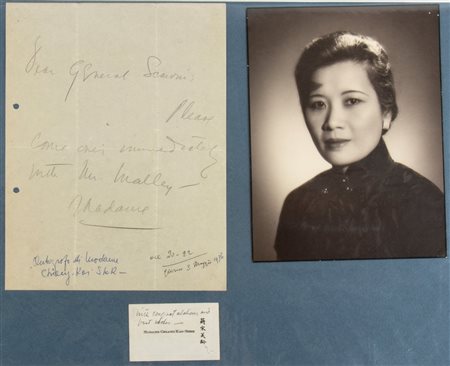 Dear General Scaroni:
Please
Come over immediately
with Mr Malley —
Madame
Autografo di Madame
Chiang-Kai Shek —
ore 20-22
giorno 3 Maggio 1936
With congratulations and
best wishes —
MADAME CHIANG KAI-SHEK
蔣宋美齡